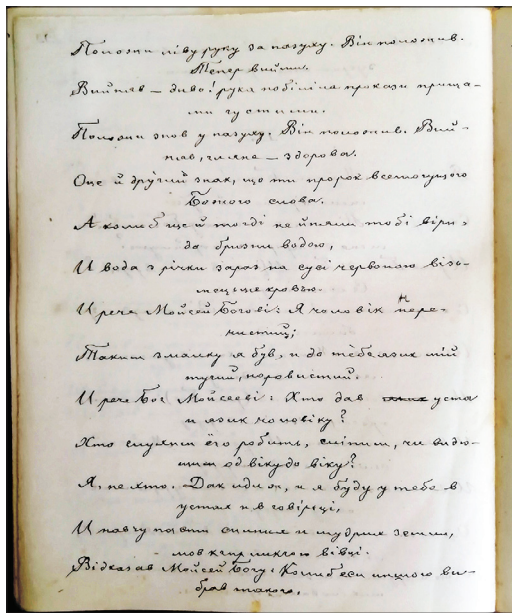 Положи ліву руку за пазуху. Він положив.
Тепер вийми.
Вийняв — диво! рука побіліла прокази прища-
ми густими.
Положи знов у пазуху. Він положив. Вий-
няв, гляне — здорова.
Оце й другий знак, що ти пророк всемогущого
Божого слова.
А коли б ще й тогді не йняли тобі віри,
до бризни водою,
И вода з річки зараз на сусі червоною візь-
меться кровью.
И рече Мойсей Богові: Я чоловік
чистий;
Таким змалку я був, и до тебе язик мій
тугий, норовистий.
И рече Бог Мойсеєві: Хто дав уста
и язик чоловіку?
Хто робить, сліпим, чи видю-
щим од віку до віку?
Я, не хто. Дак иди ж, и я буду у тебе в
устах и в говірці,
И навчу мудрих земли,
мов вівці.
Відказав Мойсей Богу: Коли б єси иншого ви-
брав такого,